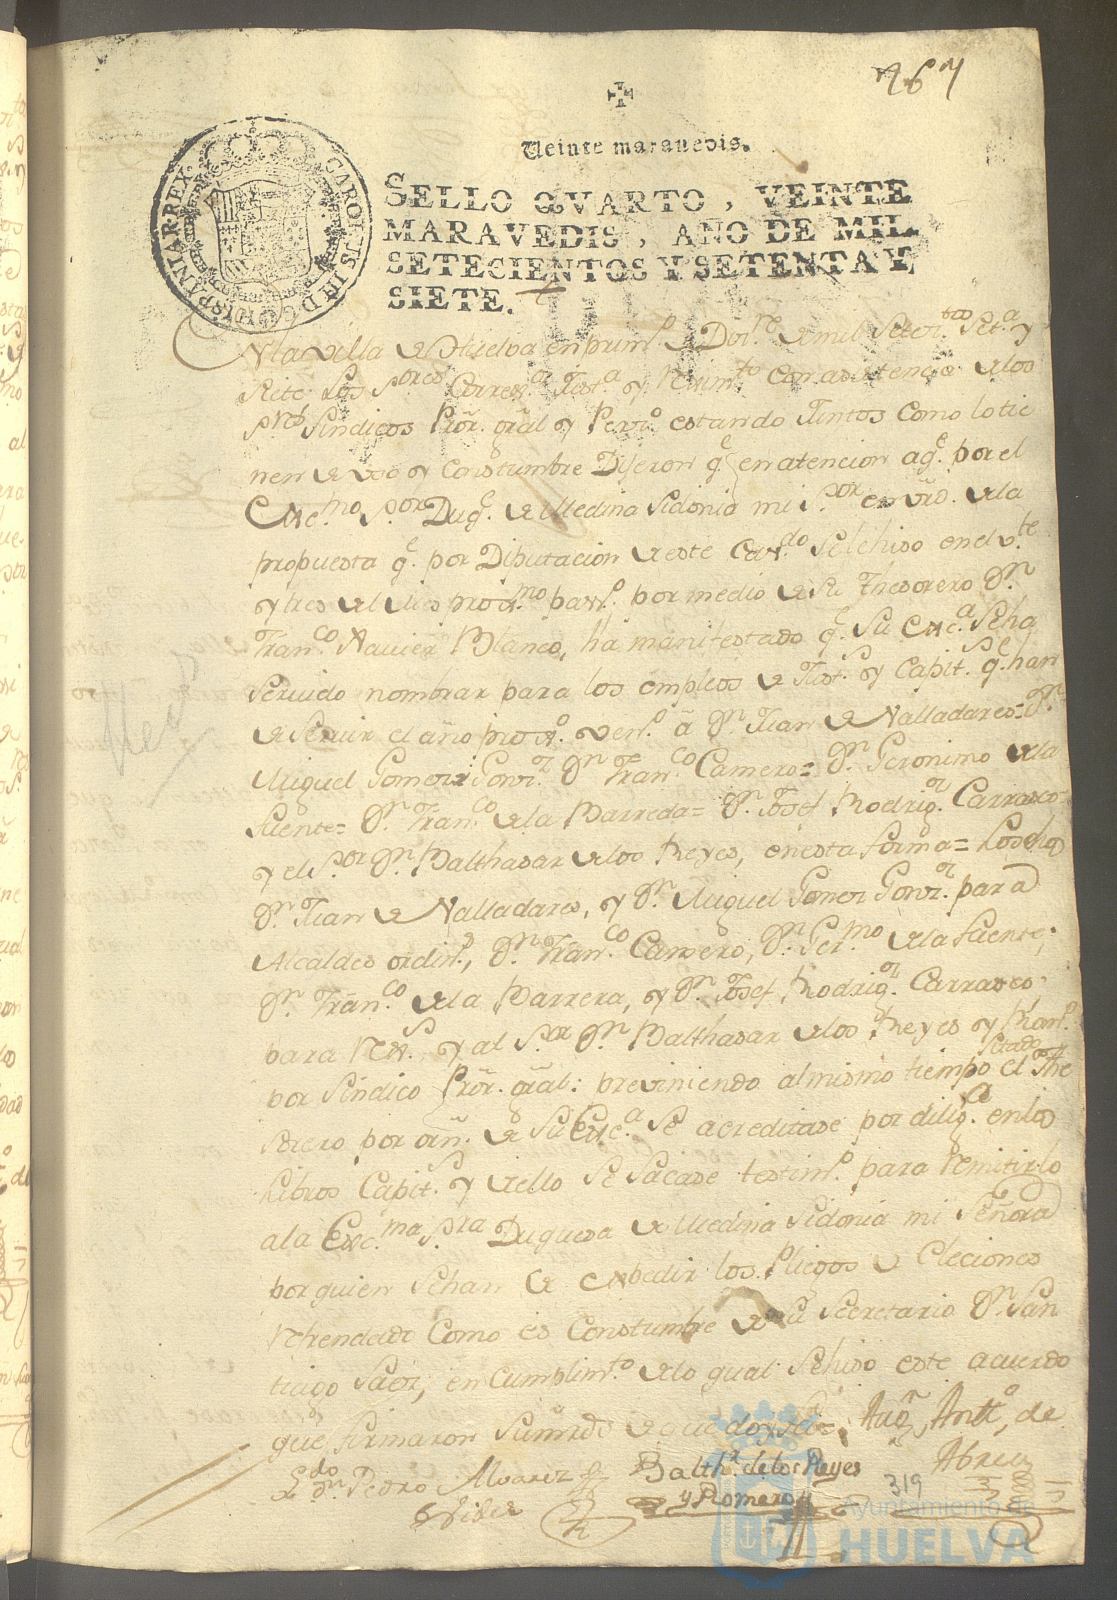 267
Veinte maravedis.
SELLO QVARTO, VEINTE
MARAVEDIS, AÑO DE MIL
SETECIENTOS Y SETENTA Y
SIETE.
CAROLUS III D G HISPANIAR REX
En la villa de Huelva en prim.º de Dix.re de mil setez.tos set.ta y
siete los S.ores Correx.or Just.a y Reximi.to con asistencia de los
S.res Sindicos Pror. gral y Pers.º estando juntos como lo tie
nen de uso y constumbre Dijeron q.e en atencion a q.e por el
Exc.mo S.or Duq.e de Medina Sidonia mi S.or en vrd. de la
propuesta q.e por Diputacion de este Cav.do se le hiso en el v.te
y tres del mes prox.mo pas.º por medio de su Thesorero D.n
Fran.co Xavier Blanco, ha manifestado q.e su Exc.a se ha
servido nombrar para los empleos de Just.s y Capit.s q.e han
de servir el año prox.º ven.º â D.n Juan de Valladares = D.n
Miguel Gomez Gonz.z D.n Fran.co Camero = D.n Geronimo de la
Fuente = D.n Fran.co de la Barreda = D.n Josef Rodrig.z Carrasco =
y el S.or D.n Balthasar de los Reyes, en esta forma = Los dhos
D.n Juan de Valladares, y D.n Miguel Gomez Gonz.z para
Alcaldes ordin.s, D.n Fran.co Camero, D.n Ger.mo de la Fuente,
D.n Fran.co de la Barrera, y D.n Josef Rodrig.z Carrasco
para Rex.s y al S.or D.n Balthasar de los Reyes y Rom.º
por Sindico Pror. gral: previniendo al mismo tiempo el citado The
sorero por orn. de Su Exc.a se acreditase por dilig.a en los
Libros Capit.s y de ello se sacase testim.º para remitirlo
a la Exc.ma S.ra Duquesa de Medina Sidonia mi Señora
por quien se han de expedir los Pliegos de Elecciones
refrendado como es constumbre de su Secretario D.n San
tiago Saez, en cumplim.to de lo qual se hiso este acuerdo
que firmaron Sus mrds de que doy fee =
Aug.n Ant.º de
Abreu
L.do D.n Pedro Alvarez
Balth.r de los Reyes
y Romero
319
Ayuntamiento de
HUELVA